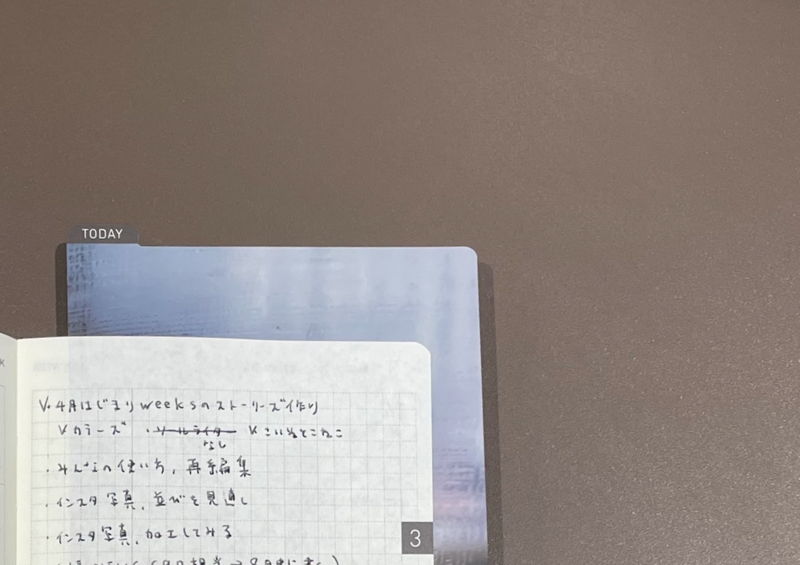 TODAY
V・4月はじまりweeksのストーリーズ作り
Vカラーズ ・ソールライター V こいぬとこねこ
なし
・みんなの使い方，再編集
・インスタ写真，並びを見直し
・インスタ写真，加工してみる
3